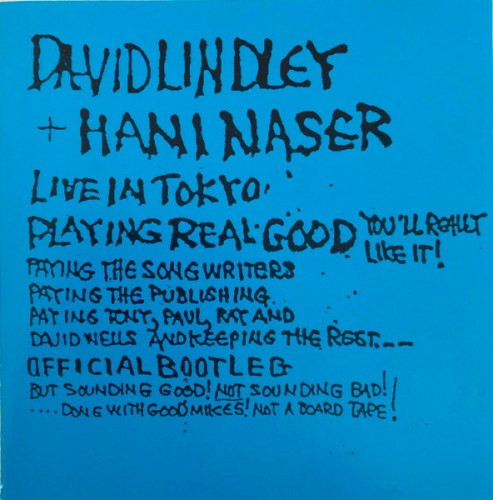 DAVID LINDLEY
+ HANI NASER
LIVE IN TOKYO
PLAYING REAL GOOD YOU'LL REALLY
LIKE IT!
PAYING THE SONGWRITERS
PAYING THE PUBLISHING
PAYING TONY, PAUL, RAY AND
DAVID WELLS AND KEEPING THE REST...
OFFICIAL BOOTLEG
BUT SOUNDING GOOD! NOT SOUNDING BAD!!
.... DONE WITH GOOD MIKES! NOT A BOARD TAPE!